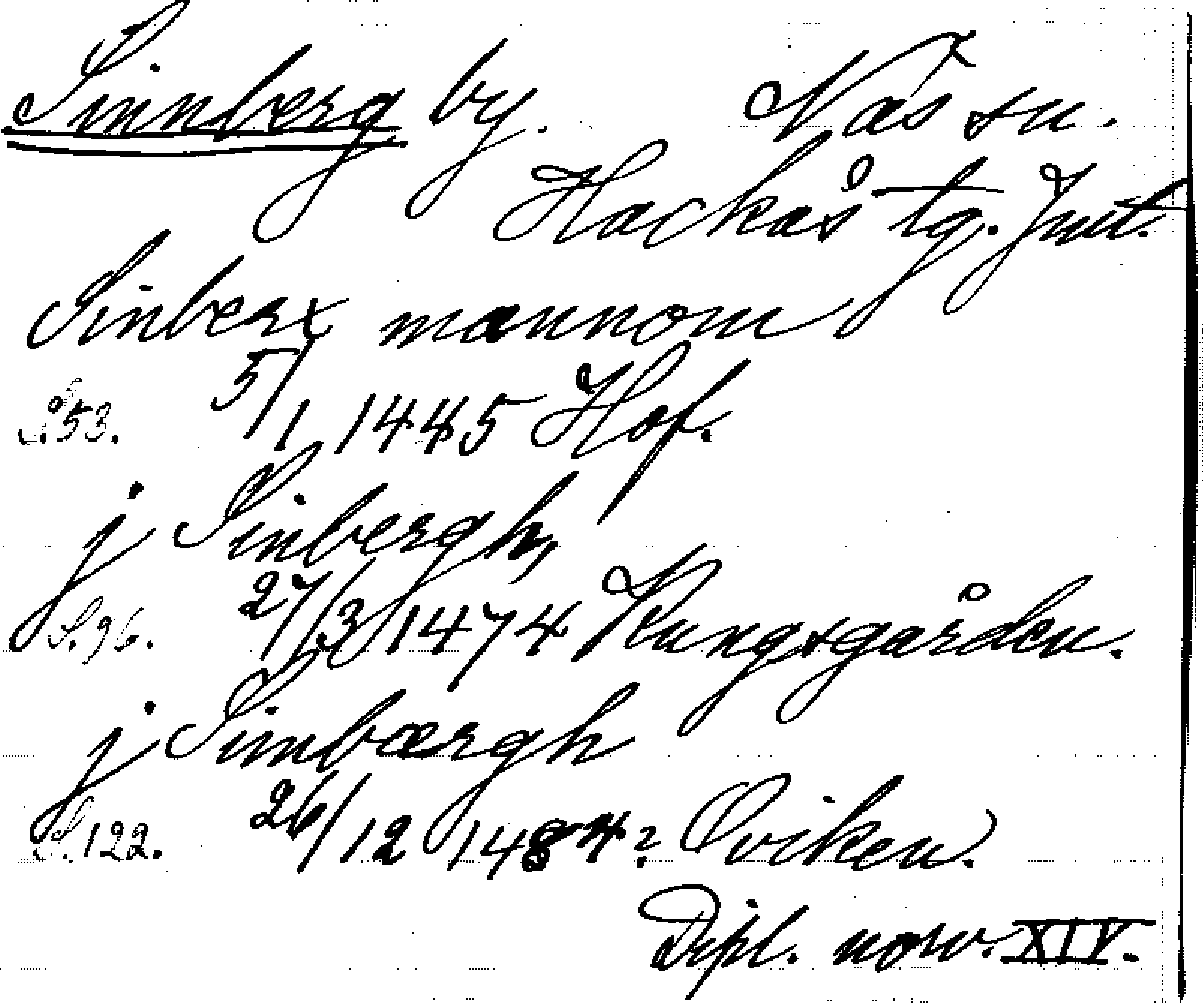 Sinnberg by. Näs sn.
Hackås tg. Jmt.
Sinberx mannom
S.53. 5/1 1445 Hof.
j Sinbergh,
S.96. 27/3 1474 Kungsgården.
j Simbærgh
S.122. 26/12 1484? Oviken.
Dipl. norv. XIV.